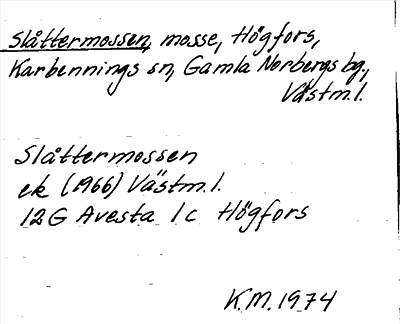 Slåttermossen, mosse, Högfors,
Karbennings sn, Gamla Norbergs bg.,
Västm.l.
Slåttermossen
ek (1966) Västm.l.
12G Avesta 1c Högfors
K.M. 1974